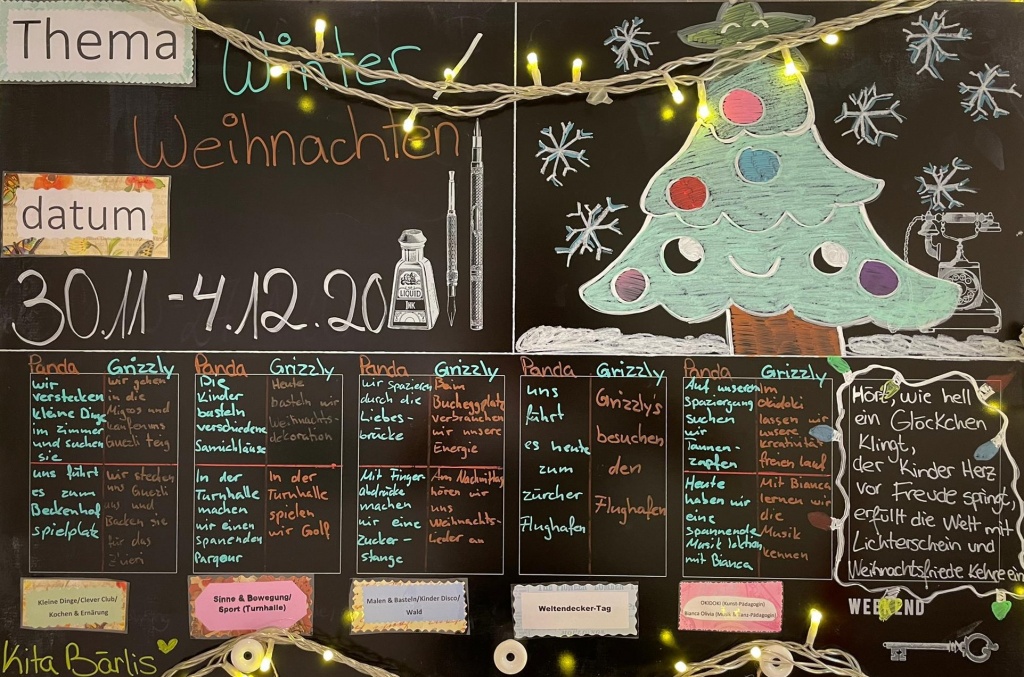 Thema
Winter
Weihnachten
datum
30.11 - 4.12.20
LIQUID
INK
Panda
wir
verstecken
kleine Dinge
im zimmer
und suchen
sie
uns führt
es zum
Beckenhof
spielplatz
Grizzly
wir gehen
in die
Migros und
kaufen uns
Guezli teig
wir stechen
uns Guezli
aus und
Backen sie
für das
Zueri
Panda
Die
Kinder
basteln
verschiedene
Samichläuse
In der
Turnhalle
machen
wir einen
spanenden
Parqour
Grizzly
Heute
basteln wir
weihnachts-
dekoration
In der
Turnhalle
spielen
wir Golf
Panda
wir spazieren
durch die
Liebes-
brücke
Mit Finger-
abdrücke
machen
wir eine
zucker-
stange
Grizzly
Beim
Bucheggplatz
verbrauchen
wir unsere
Energie
Am Nachmittag
hören wir
uns
Weihnachts-
Lieder an
Panda
uns
führt
es heute
zum
zürcher
Flughafen
Grizzly
Grizzly's
besuchen
den
Flughafen
Panda
Auf unseren
spaziergang
suchen
wir
Tannen-
zapfen
Heute
haben wir
eine
spannende
Musik lektion
mit Bianca
Grizzly
Im
Okidoki
lassen wir
unsere
kreativität
freien lauf
Mit Bianca
lernen wir
die
Musik
kennen
Hört, wie hell
ein Glöckchen
Klingt,
der Kinder Herz
vor Freude springt,
erfüllt die Welt mit
Lichterschein und
Weihnachtsfriede Kehre ein
Kleine Dinge/Clever Club/
Kochen & Ernärung
Sinne & Bewegung/
Sport (Turnhalle)
Malen & Basteln/Kinder Disco/
Wald
Weltendecker-Tag
OKIDOKI (Kunst-Pädagogin)
Bianca Olivia (Musik & Tanz-Pädagogin)
WEEK2ND
Kita Bärlis